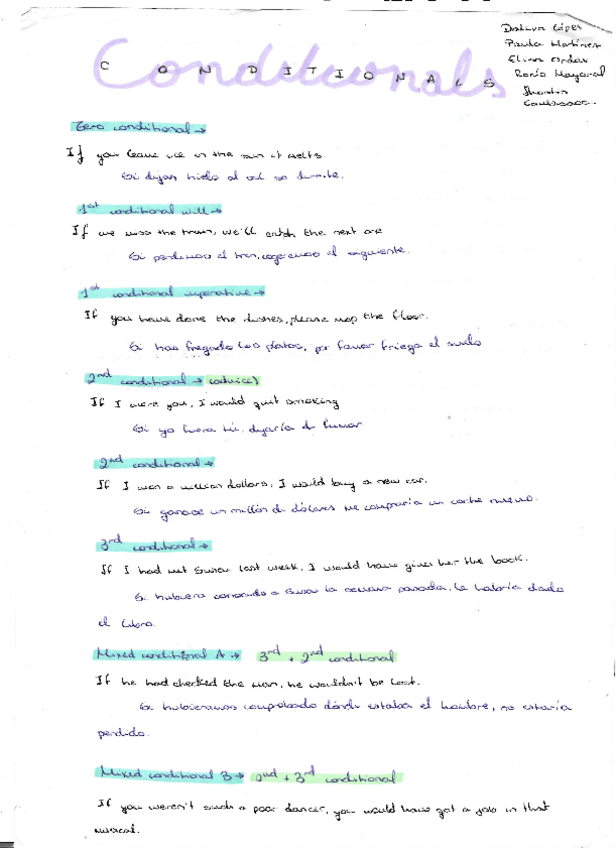 Paula Martínez
Rocío Mayoral
Conditionals
CONDITIONALS
Zero conditional →
If you leave ice in the sun it melts.
Si dejas hielo al sol se derrite.
1st conditional will →
If we miss the train, we'll catch the next one
Si perdemos el tren, cogeremos el siguiente.
1st conditional imperative →
If you have done the dishes, please mop the floor.
Si has fregado los platos, por favor friega el suelo
2nd conditional → (advice)
If I were you, I would quit smoking
Si yo fuera tú, dejaría de fumar
2nd conditional →
If I won a million dollars, I would buy a new car.
Si ganase un millón de dólares me compraría un coche nuevo.
3rd conditional →
If I had met Susan last week, I would have given her the book.
Si hubiera conocido a Susan la semana pasada, le habría dado
el libro.
Mixed conditional A → 3rd + 2nd conditional
If he had checked the map, he wouldn't be lost.
Si hubieramos comprobado dónde estaba el hombre, no estaría
perdido.
Mixed conditional B → 2nd + 3rd conditional
If you weren't such a poor dancer, you would have got a job in that
musical.